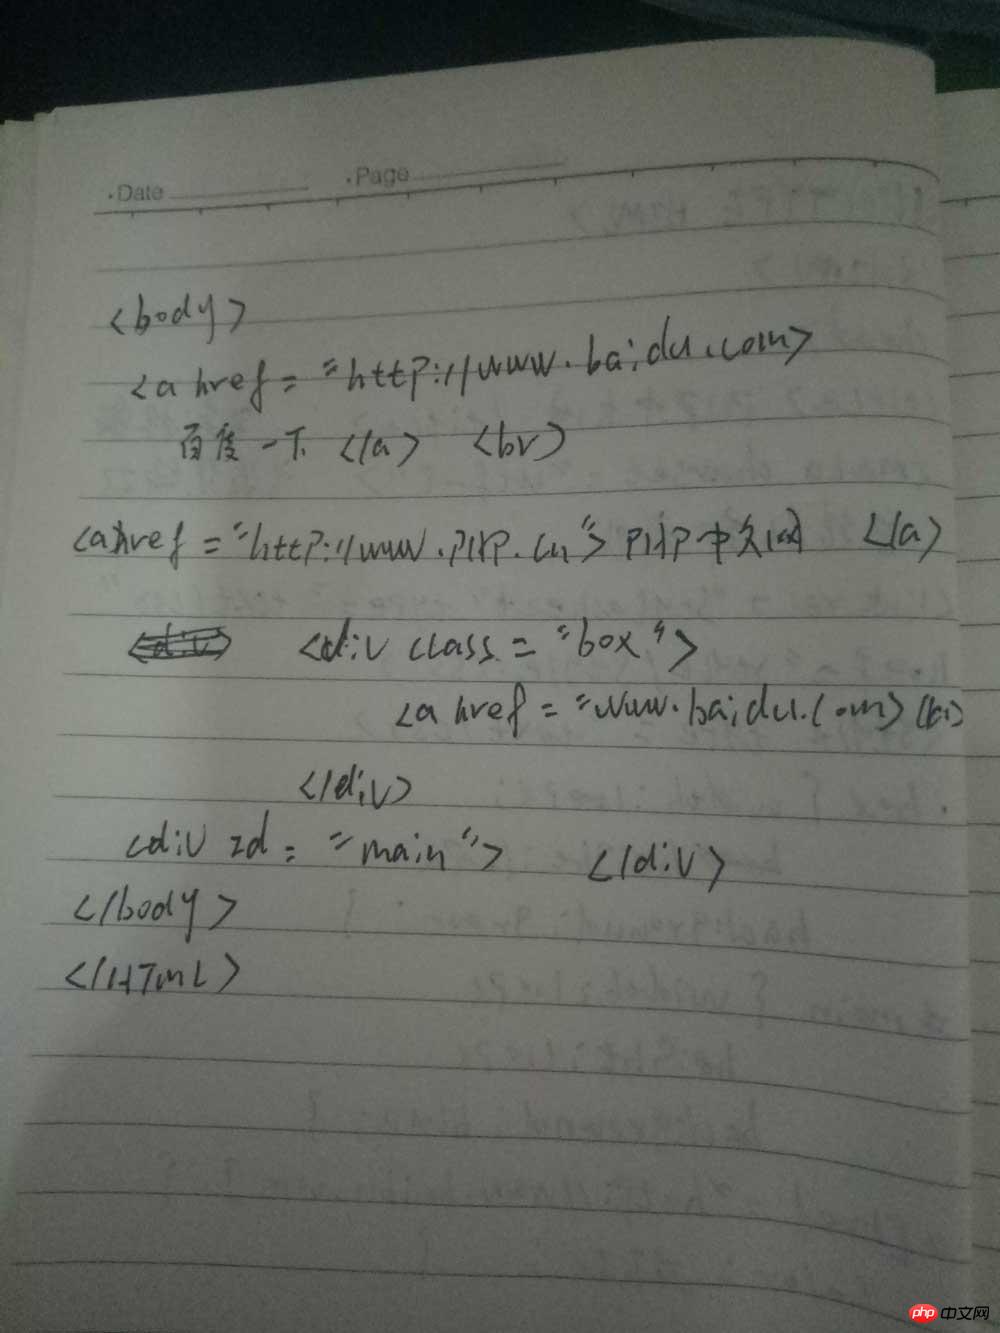 Date Page
<body>
<a href = "http://www.baidu.com>
百度一下 </a> <br>
<a href = "http://www.PHP.cn"> PHP中文网 </a>
<div class = "box">
<a href = "www.baidu.com>
</div>
<div id = "main"> </div>
</body>
</HTML>
php 中文网